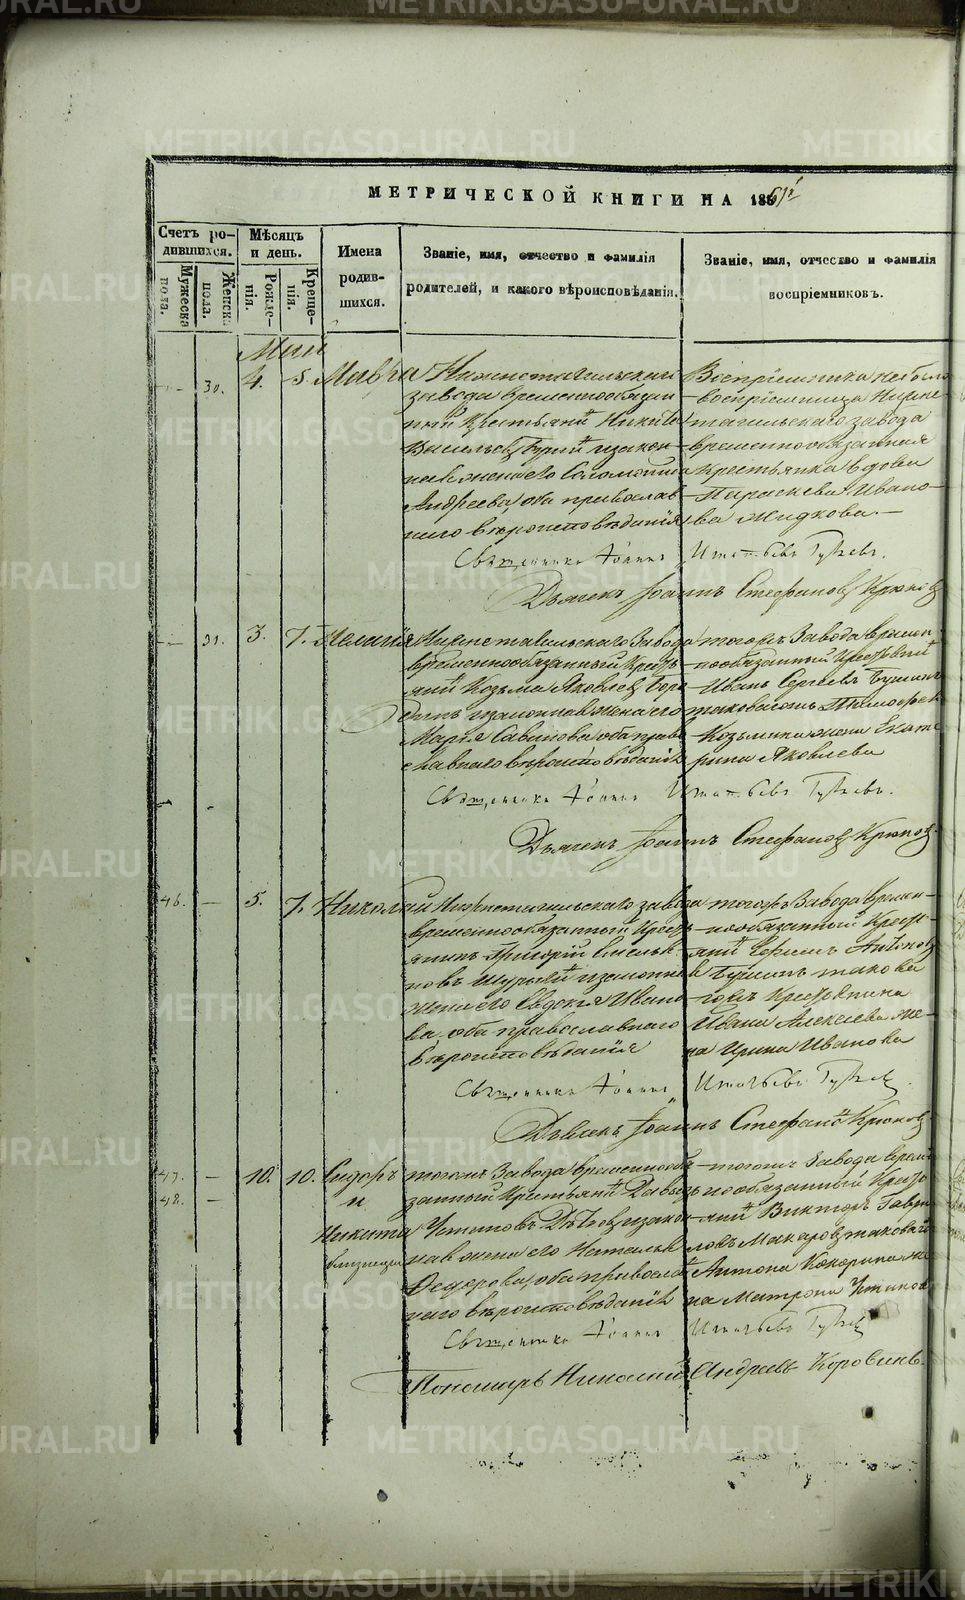 МЕТРИЧЕСКОЙ КНИГИ НА 1861й
Счетъ родившихся.
Мужеска пола.
Женска пола.
Мѣсяцъ и день.
Рожденія.
Крещенія.
Имена родившихся.
Званіе, имя, отчество и фамилія родителей, и какого вѣроисповѣданія.
Званіе, имя, отчество и фамилія воспріемниковъ.
Маій
30. 4. 5. Мавра
Нижнетагильскаго
завода временнообязан
ный Крестьянинъ Никита
Васильевъ и закон
ная жена его Соломонія
Андреева, оба православ
наго вѣроисповѣданія
Воспріемника не было
воспріемница Нижне
тагильскаго завода
временнообязанная
крестьянка вдова
Параскева Ивано
ва Жидкова.
Священникъ Іоаннъ Игнатьевъ
Дьячекъ Іоаннъ Стефановъ Крюковъ
31. 3. 7. Пелагія
Нижнетагильскаго Завода
временнообязанный Кресть
янинъ Козьма Яковлевъ
и законная жена его
Марья Савинова, оба право
славнаго вѣроисповѣданія
тогожъ Завода времен
нообязанный Крестьянинъ
Иванъ Сергеевъ
таковагожъ Тимофея
Козьмина жена Екате
рина Яковлева
Священникъ Іоаннъ Игнатьевъ
Дьячекъ Іоаннъ Стефановъ Крюковъ
46. 5. 7. Николай
Нижнетагильскаго завода
временнообязанный Кресть
янинъ Григорій Василь
евъ и законная
жена его Евдокія Ивано
ва, оба православнаго
вѣроисповѣданія
тогожъ Завода времен
нообязанный Кресть
янинъ Ефимъ Антоновъ
такова
гожъ Крестьянина
Ивана Алексѣева же
на Ирина Иванова
Священникъ Іоаннъ Игнатьевъ
Дьячекъ Іоаннъ Стефановъ Крюковъ
47. 10. 10. Сидоръ
48. и
Никита
близнецы
тогожъ Завода временнообя
занный Крестьянинъ Давыдъ
Устиновъ и закон
ная жена его Наталья
Федорова, оба православ
наго вѣроисповѣданія
тогожъ Завода времен
нообязанный Кресть
янинъ Викторъ Гаври
ловъ Макаровъ таковаго
Антона Кокорина же
на Матрона Устинова
Священникъ Іоаннъ Игнатьевъ
Пономарь Николай Андреевъ Коровинъ.
METRIKI.GASO-URAL.RU